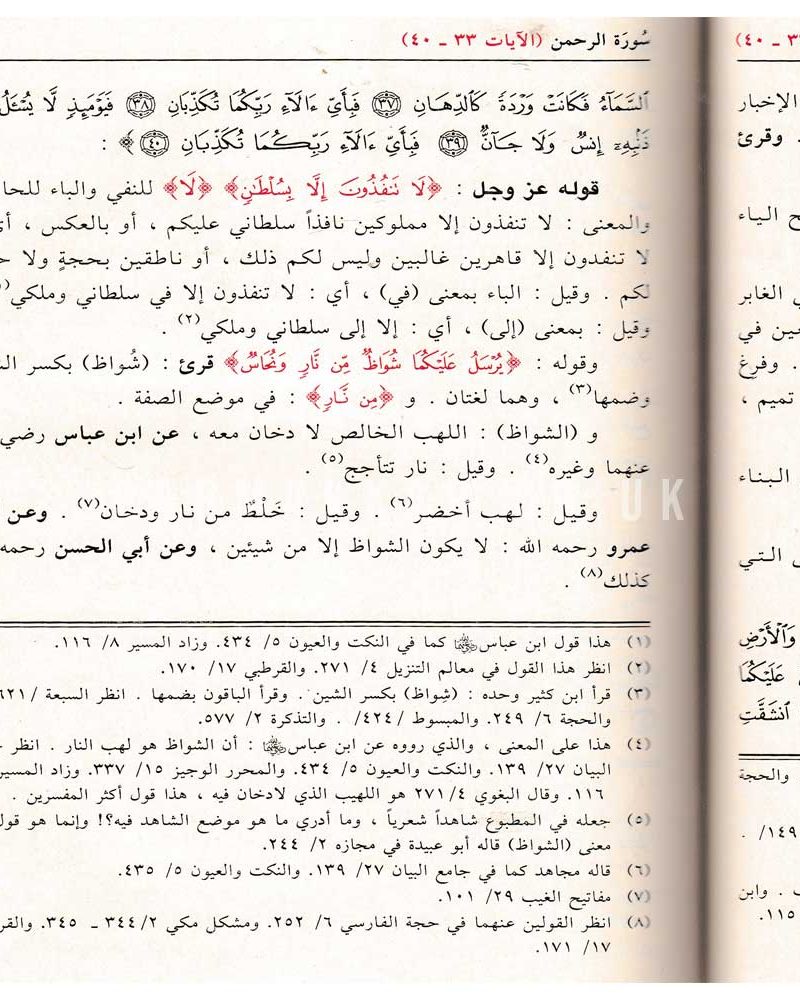 سُورَة الرحمن (الآيات ٣٣ - ٤٠)
السَّمَآءُ فَكَانَتْ وَرْدَةً كَٱلدِّهَانِ ﴿٣٧﴾ فَبِأَيِّ ءَالَآءِ رَبِّكُمَا تُكَذِّبَانِ ﴿٣٨﴾ فَيَوْمَئِذٍ لَّا يُسْـَٔلُ
ذَنۢبِهِۦٓ إِنسٌ وَلَا جَآنٌّ ﴿٣٩﴾ فَبِأَيِّ ءَالَآءِ رَبِّكُمَا تُكَذِّبَانِ ﴿٤٠﴾ ﴾ :
قوله عز وجل : ﴿لَا تَنفُذُونَ إِلَّا بِسُلْطَٰنٍ﴾ ﴿لَا﴾ للنفي والباء للحا
والمعنى : لا تنفذون إلا مملوكين نافذاً سلطاني عليكم ، أو بالعكس ، أي
لا تنفدون إلا قاهرين غالبين وليس لكم ذلك ، أو ناطقين بحجةٍ ولا
لكم . وقيل : الباء بمعنى (في) ، أي : لا تنفذون إلا في سلطاني وملكي
وقيل : بمعنى (إلى) ، أي : إلا إلى سلطاني وملكي(٢) .
وقوله : ﴿يُرْسَلُ عَلَيْكُمَا شُوَاظٌ مِّن نَّارٍ وَنُحَاسٌ﴾ قرئ : (شُواظ) بكسر
وضمها(٣) ، وهما لغتان . و ﴿مِن نَّارٍ﴾ : في موضع الصفة .
و (الشواظ) : اللهب الخالص لا دخان معه ، عن ابن عباس رضي
عنهما وغيره(٤) . وقيل : نار تتأجج(٥) .
وقيل : لهب أخضر(٦) . وقيل : خَلْطٌ من نار ودخان(٧) . وعن
عمرو رحمه الله : لا يكون الشواظ إلا من شيئين ، وعن أبي الحسن رحمه
كذلك(٨) .
(١) هذا قول ابن عباس ﷺ كما في النكت والعيون ٥/ ٤٣٤. وزاد المسير ٨/ ١١٦.
(٢) انظر هذا القول في معالم التنزيل ٤/ ٢٧١. والقرطبي ١٧/ ١٧٠.
(٣) قرأ ابن كثير وحده : (شِواظ) بكسر الشين . وقرأ الباقون بضمها . انظر السبعة /٦٢١
والحجة ٦/ ٢٤٩. والمبسوط /٤٢٤/ . والتذكرة ٢/ ٥٧٧.
(٤) هذا على المعنى ، والذي رووه عن ابن عباس : أن الشواظ هو لهب النار . انظر
البيان ٢٧/ ١٣٩. والنكت والعيون ٥/ ٤٣٤. والمحرر الوجيز ١٥/ ٣٣٧. وزاد المسير
١١٦. وقال البغوي ٤/ ٢٧١ هو اللهيب الذي لادخان فيه ، هذا قول أكثر المفسرين .
(٥) جعله في المطبوع شاهداً شعرياً ، وما أدري ما هو موضع الشاهد فيه؟! وإنما هو قول
معنى (الشواظ) قاله أبو عبيدة في مجازه ٢/ ٢٤٤.
(٦) قاله مجاهد كما في جامع البيان ٢٧/ ١٣٩. والنكت والعيون ٥/ ٤٣٥.
(٧) مفاتيح الغيب ٢٩/ ١٠١.
(٨) انظر القولين عنهما في حجة الفارسي ٦/ ٢٥٢. ومشكل مكي ٢/ ٣٤٤ - ٣٤٥. والقر
١٧/ ١٧١.
٣ - ٤٠)
الإخبار
وقرئ
ح الياء
الغابر
ين في
. وفرغ
تميم ،
البناء
التي
وَٱلْأَرْضِ
عَلَيْكُمَا
ٱنشَقَّتِ
والحجة
١٤٩/ .
. وابن
١١٥.
UK